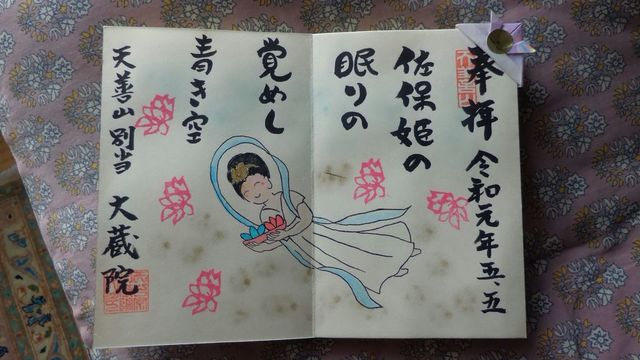 奉拝 令和元年五、五
佐保姫の
眠りの
覚めし
青き空
天善山別当 大蔵院